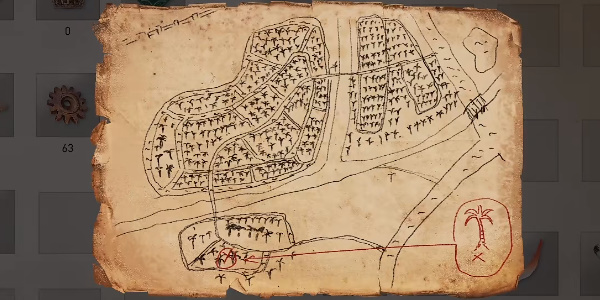 0
63